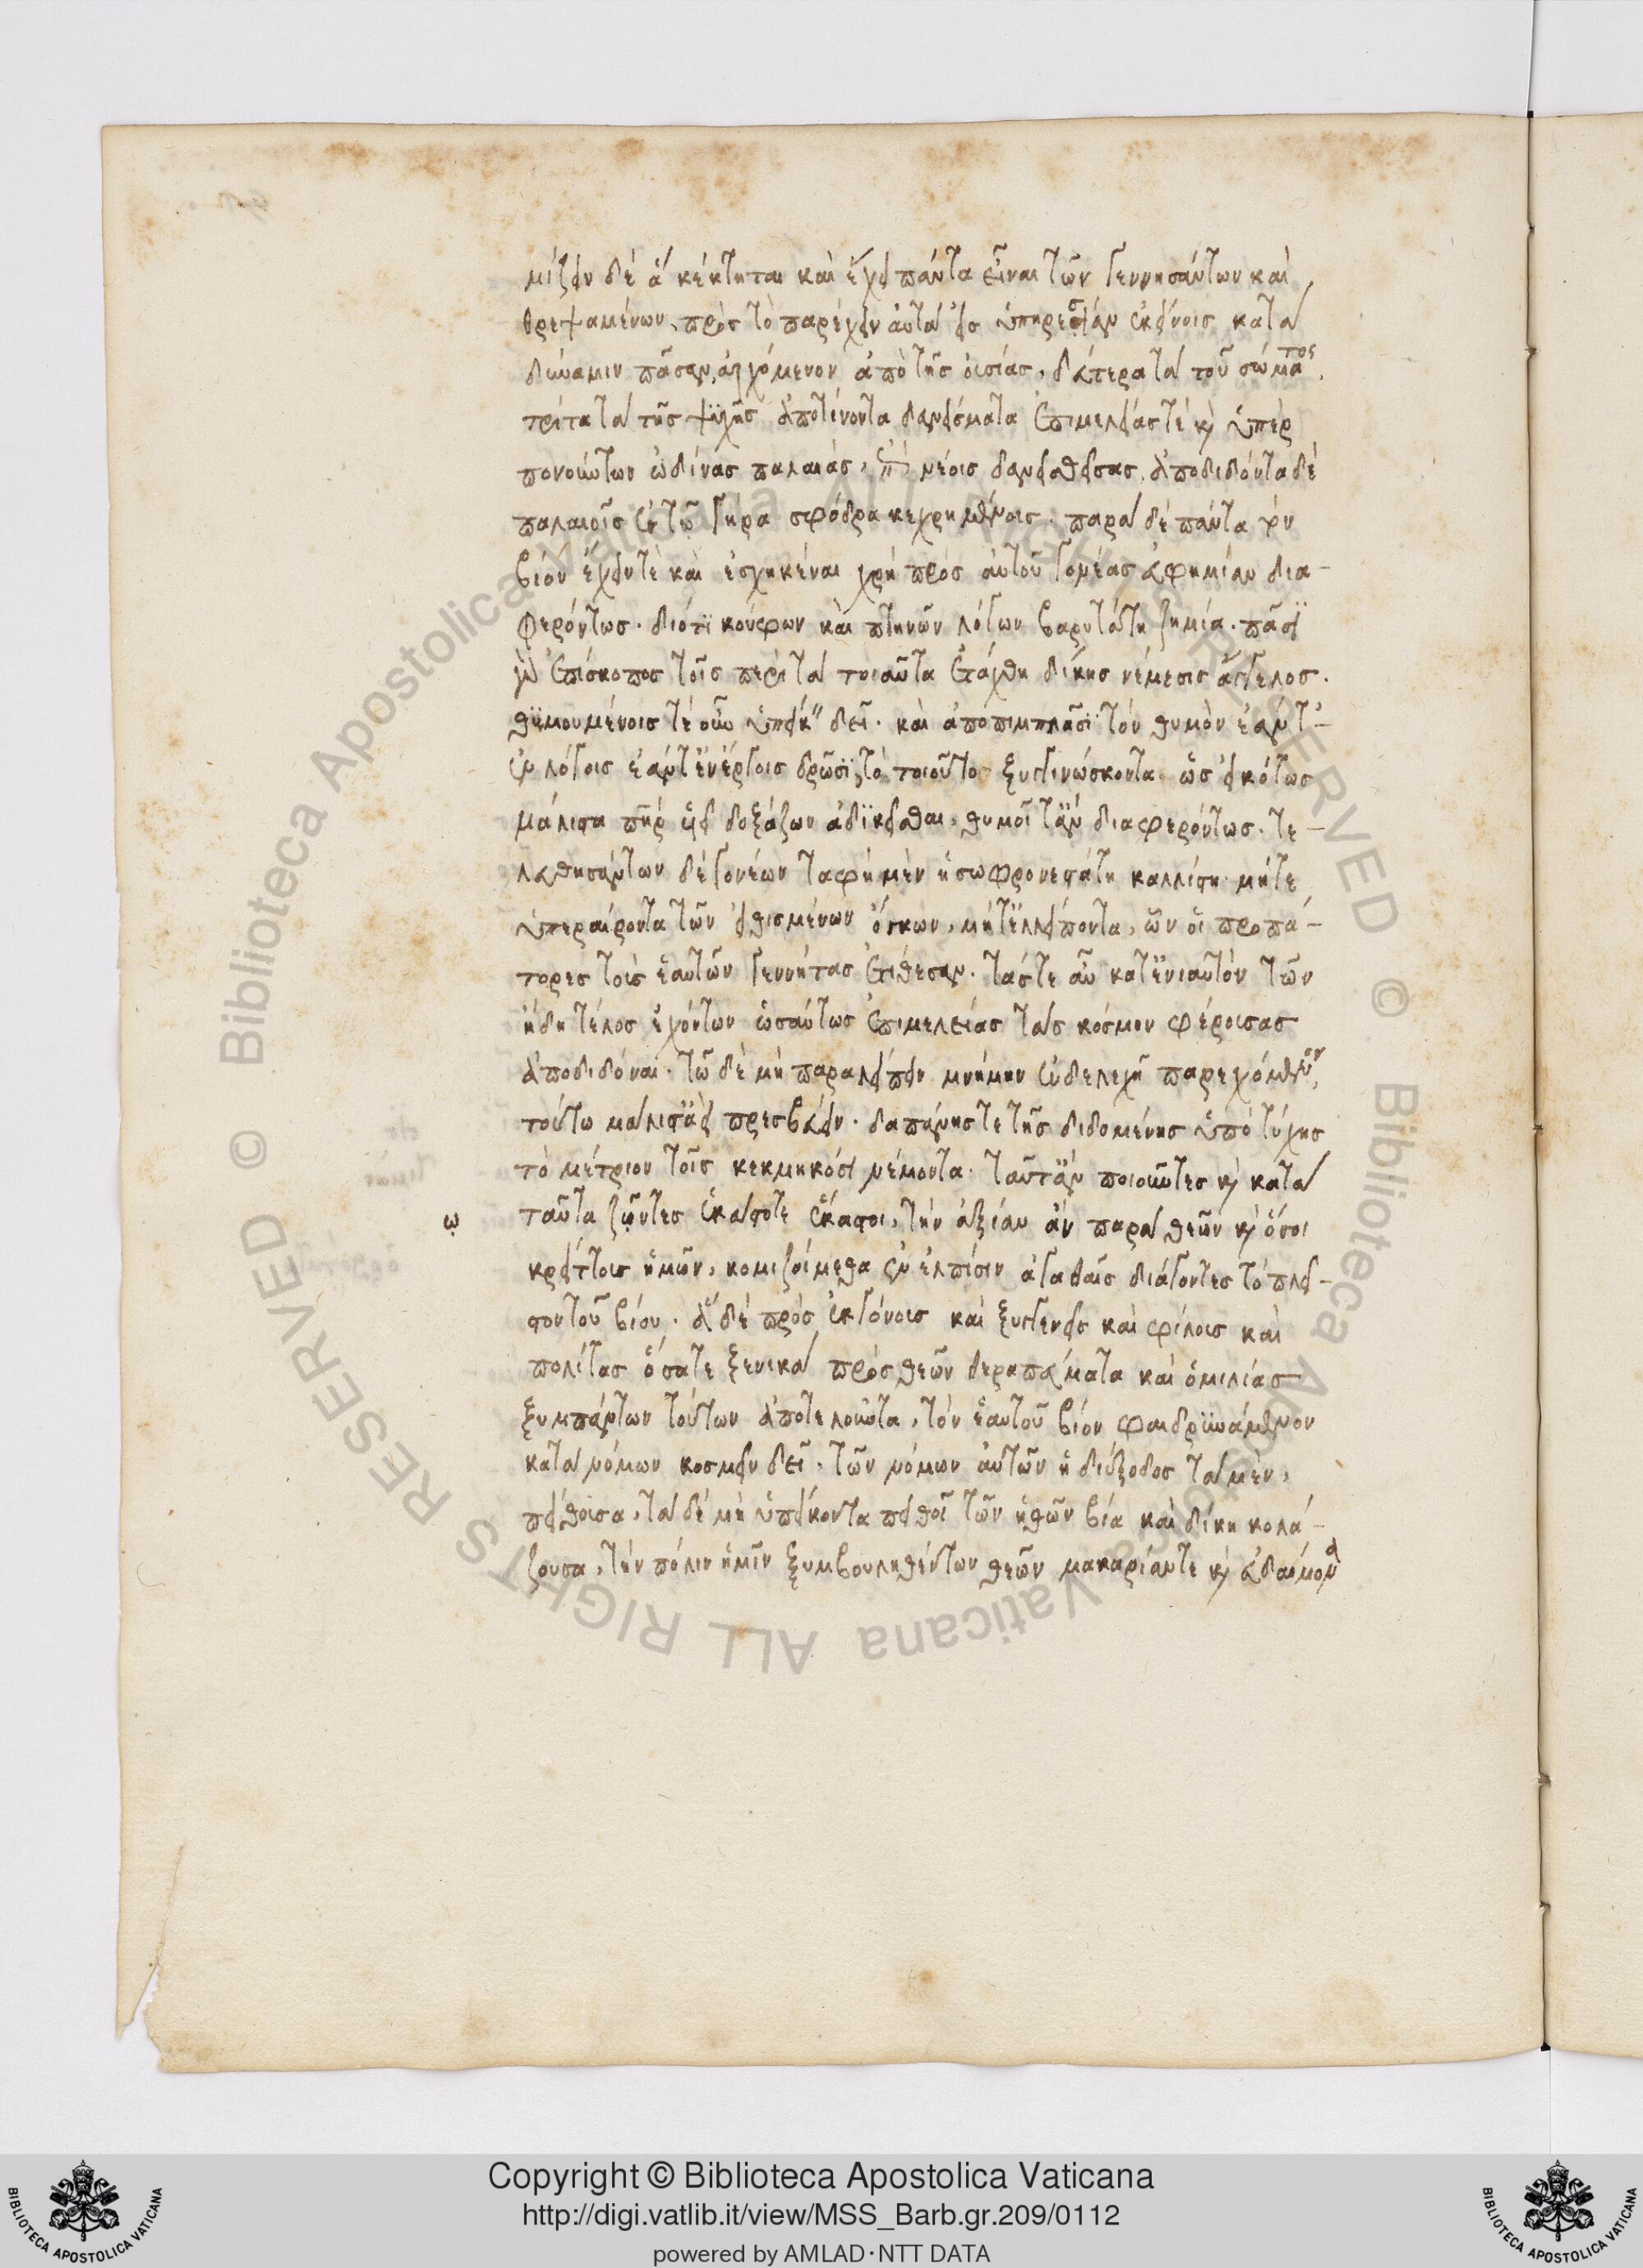 μίζειν δὲ ἃ κέκτηται καὶ ἔχει πάντα εἶναι τῶν γεννησάντων καὶ
θρεψαμένων, πρὸς τὸ παρέχειν αὐτὰ εἰς ὑπηρεσίαν ἐκείνοις κατὰ
δύναμιν πᾶσαν, ἀρχόμενον ἀπὸ τῆς οὐσίας, δεύτερα τὰ τοῦ σώματος,
τρίτα τὰ τῆς ψυχῆς ἀποτίνοντα δανείσματα ἐπιμελείας τὲ καὶ ὑπὲρ
πονούντων ὠδίνας παλαιὰς, ἐπὶ νέοις δανεισθείσας, ἀποδιδόντα δὲ
παλαιοῖς ἐν τῷ γήρα σφόδρα κεχρημένοις. παρὰ δὲ πάντα τὸν
βίον ἔχειν τὲ καὶ ἐσχηκέναι χρὴ πρὸς αὐτοῦ γονέας εὐφημίαν δια-
φερόντως. διότι κούφων καὶ πτηνῶν λόγων βαρυτάτη ζημία. πᾶσι
γὰρ ἐπίσκοπος τοῖς περὶ τὰ τοιαῦτα ἐτάχθη δίκης νέμεσις ἄγγελος.
θυμουμένοις τὲ οὖν ὑπείκειν δεῖ. καὶ ἀποπιμπλᾶσι τὸν θυμὸν ἐάν τ'
ἐν λόγοις ἐάν τ' ἐν ἔργοις δρῶσι τὸ τοιοῦτο ξυγγινώσκοντα ὡς εἰκότως
μάλιστα πατὴρ υἱεῖ δοξάζων ἀδικεῖσθαι, θυμοῖτ' ἂν διαφερόντως. τε-
λευτησάντων δὲ γονέων ταφὴ μὲν ἡ σωφρονεστάτη καλλίστη. μήτε
ὑπεραίροντα τῶν εἰθισμένων ὄγκων, μήτ' ἐλλείποντα, ὧν οἱ προπά-
τορες τοὺς ἑαυτῶν γεννήτας ἐτίθεσαν. τάς τε αὖ κατ' ἐνιαυτὸν τῶν
ἤδη τέλος ἐχόντων ὡσαύτως ἐπιμελείας τὰς κόσμον φέρουσας
ἀποδιδόναι. τῷ δὲ μὴ παραλείπειν μνήμην ἐνδελεχῆ παρεχόμενον,
τούτῳ μάλιστ' ἀεὶ πρεσβεύειν. δαπάνης τε τῆς διδομένης ὑπὸ τύχης
τὸ μέτριον τοῖς κεκμηκόσι νέμοντα. ταῦτ' ἂν ποιοῦντες καὶ κατὰ
ταῦτα ζῶντες ἑκάστοτε ἕκαστοι, τὴν ἀξίαν ἂν παρὰ θεῶν καὶ ὅσοι
ω
κρείττους ἡμῶν, κομιζοίμεθα ἐν ἐλπίσιν ἀγαθαῖς διάγοντες τὸ πλεῖ-
στον τοῦ βίου. ἃ δὲ πρὸς ἐκγόνους καὶ ξυγγενεῖς καὶ φίλους καὶ
πολίτας ὅσα τε ξενικὰ πρὸς θεῶν θεραπεύματα καὶ ὁμιλίας
ξυμπάντων τούτων ἀποτελοῦντα, τὸν ἑαυτοῦ βίον φαιδρυνάμενον
κατὰ νόμων κοσμεῖν δεῖ. τῶν νόμων αὐτῶν ἡ διέξοδος τὰ μὲν,
πείθουσα, τὰ δὲ μὴ ὑπείκοντα πειθοῖ τῶν ἠθῶν βία καὶ δίκη κολά-
ζουσα, τὴν πόλιν ἡμῖν ξυμβουληθέντων θεῶν μακαρίαν τε καὶ εὐδαίμονα
Copyright © Biblioteca Apostolica Vaticana
http://digi.vatlib.it/view/MSS_Barb.gr.209/0112
powered by AMLAD·NTT DATA
BIBLIOTECA APOSTOLICA VATICANA
BIBLIOTECA APOSTOLICA VATICANA
© Biblioteca Apostolica Vaticana ALL RIGHTS RESERVED
© Biblioteca Apostolica Vaticana ALL RIGHTS RESERVED